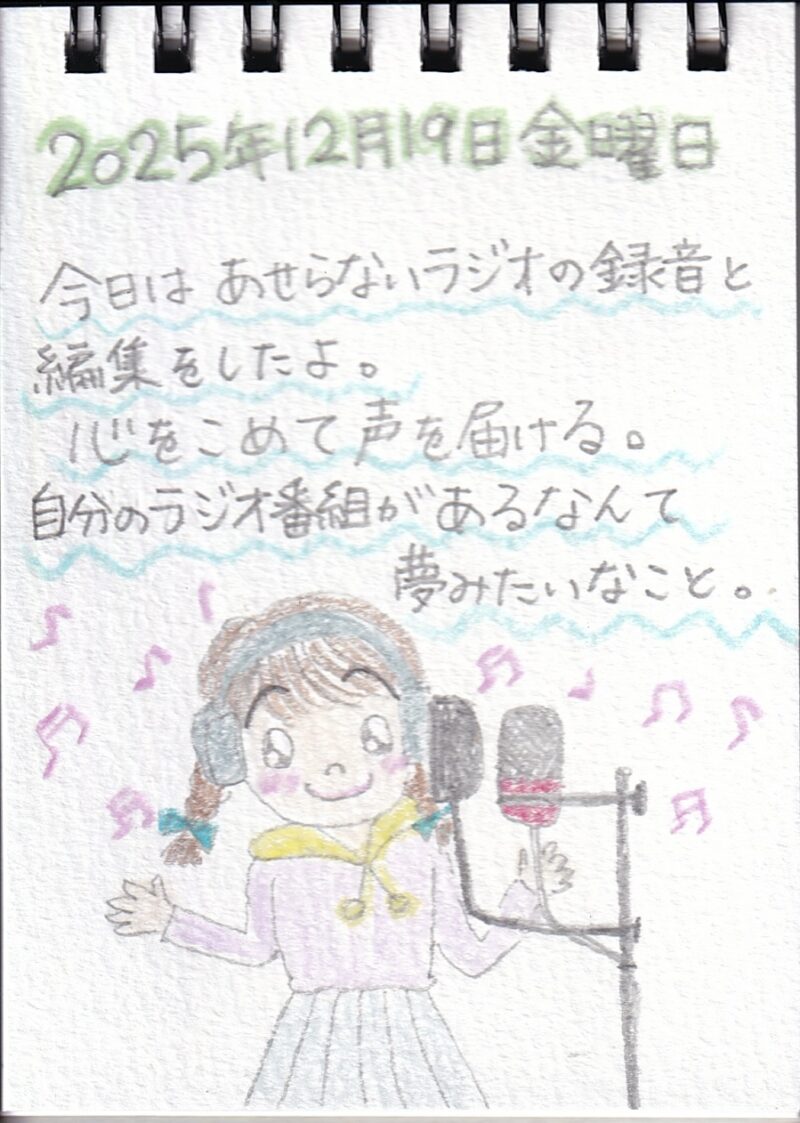 2025年12月19日金曜日
今日はあせらないラジオの録音と
編集をしたよ。
心をこめて声を届ける。
自分のラジオ番組があるなんて
夢みたいなこと。